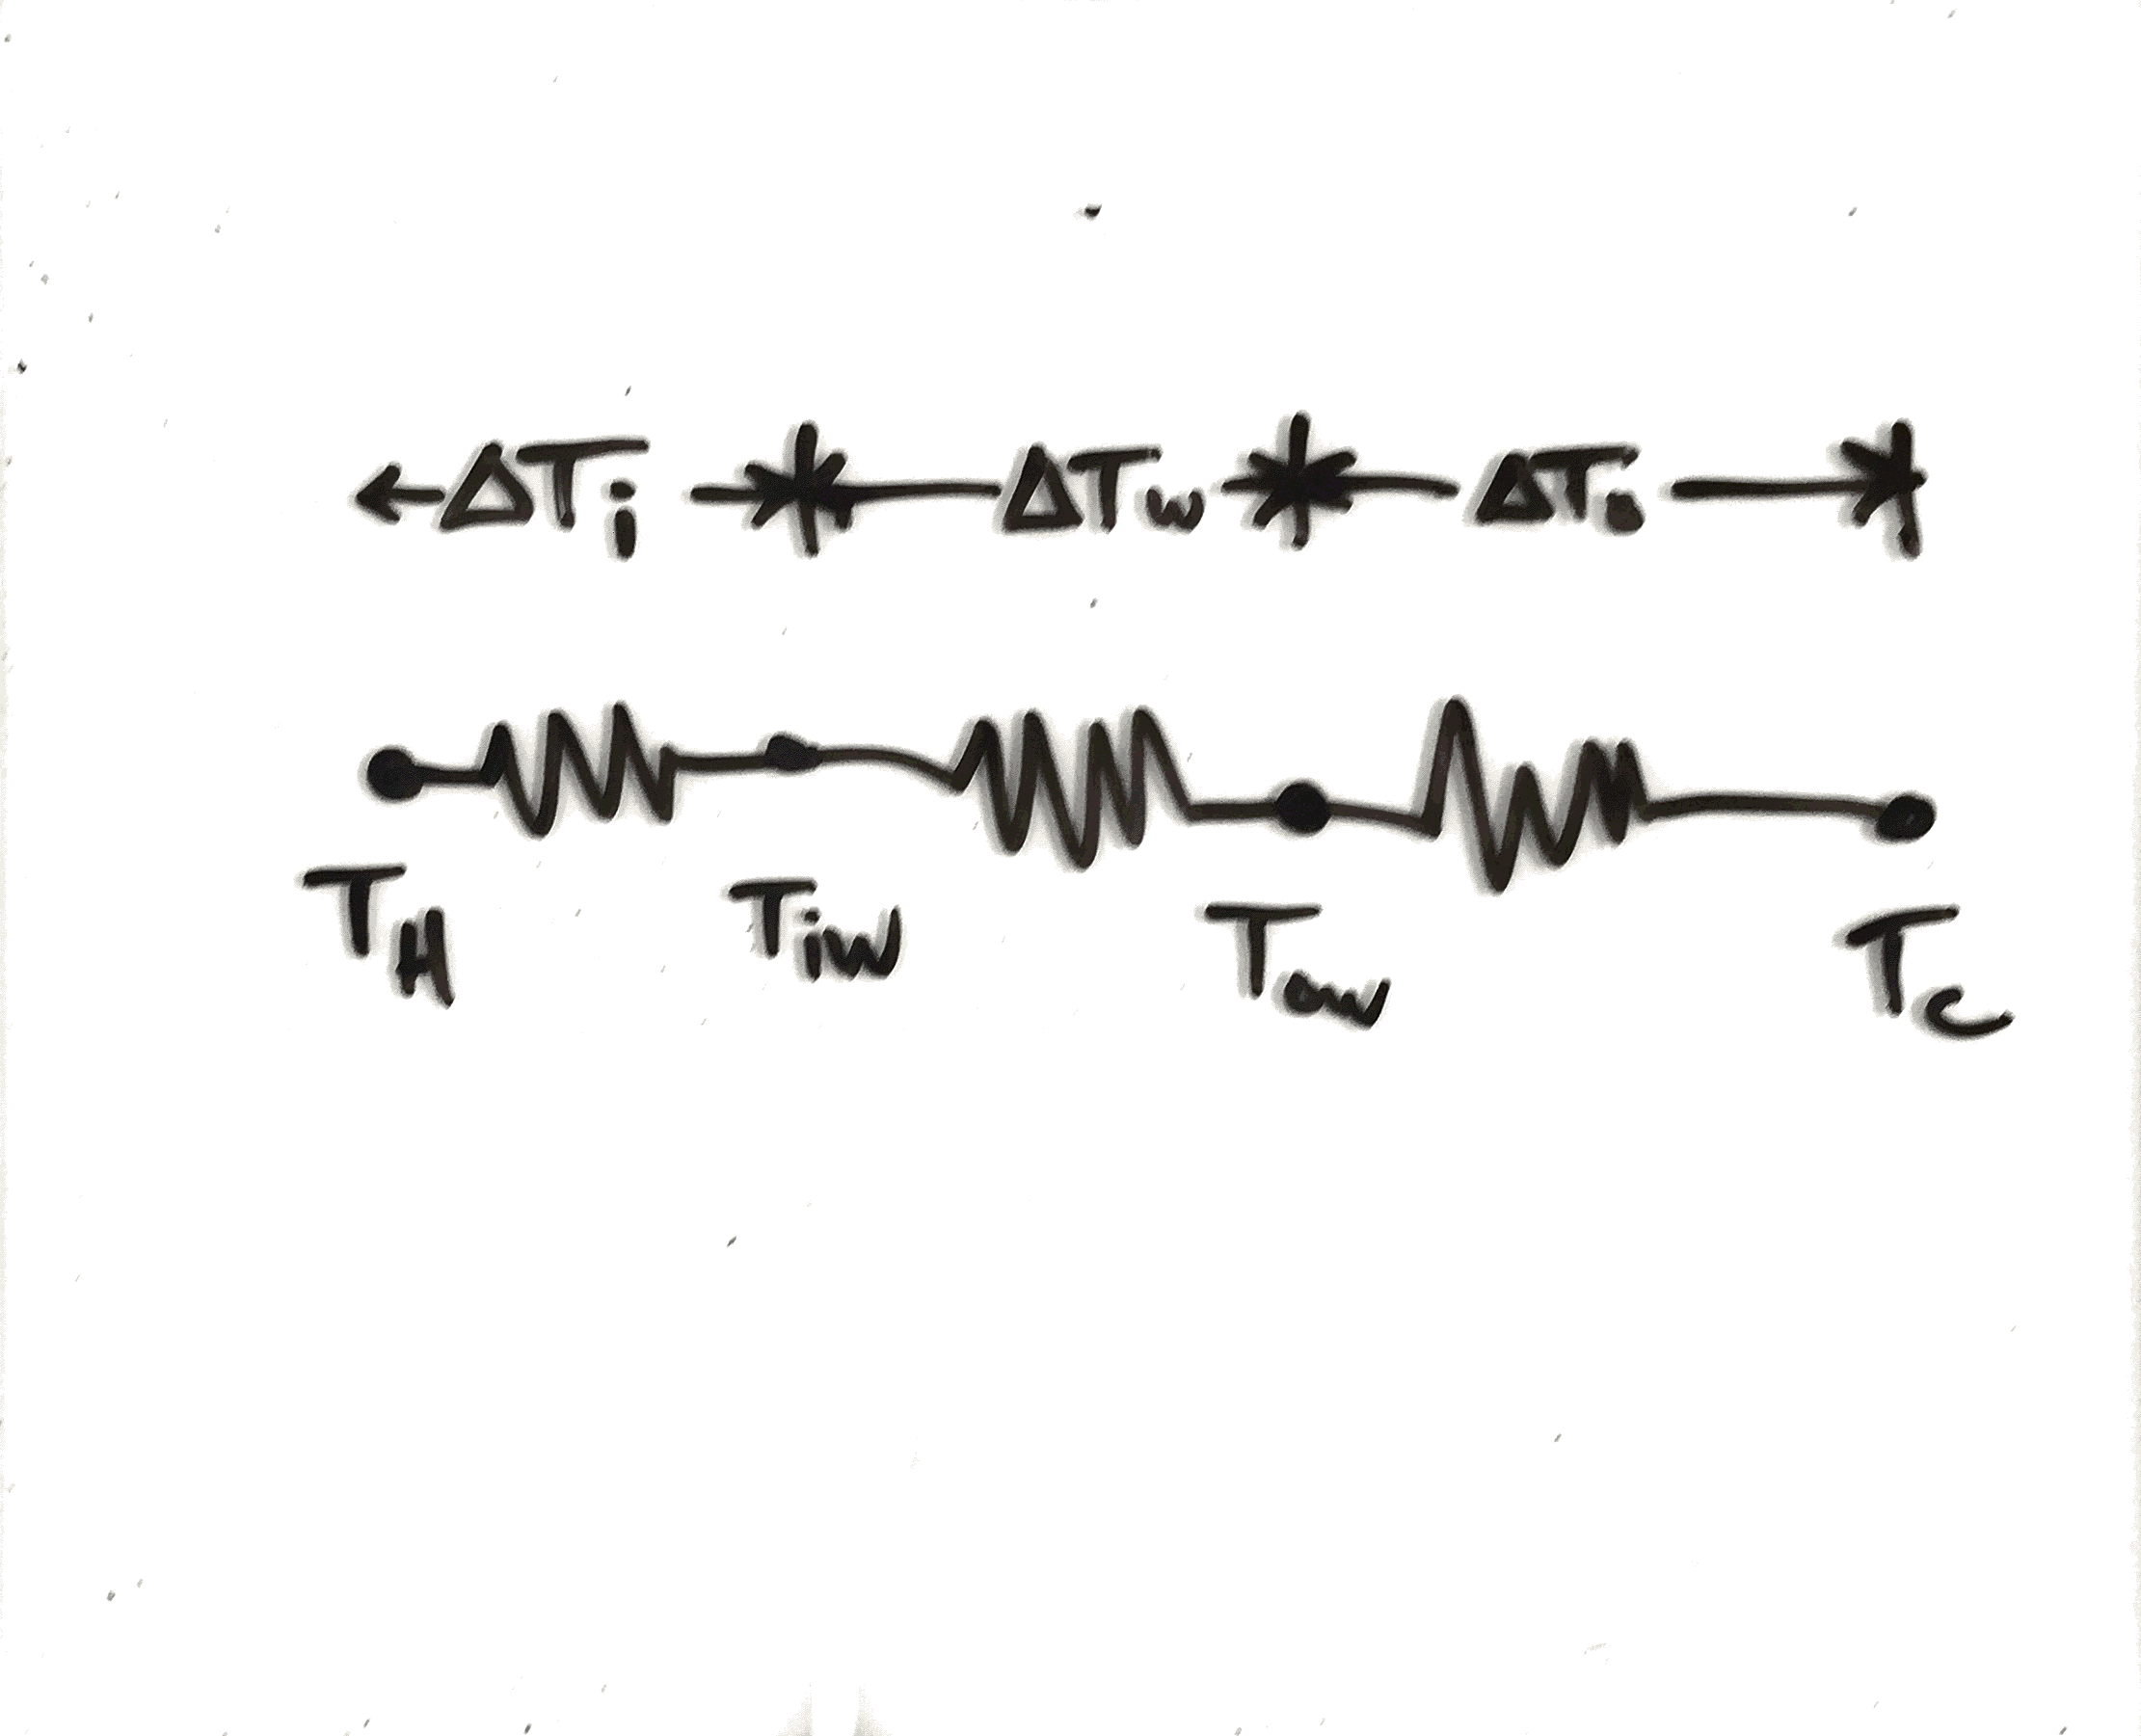 ΔTi ΔTw ΔTo
TH Tiw Tow Tc